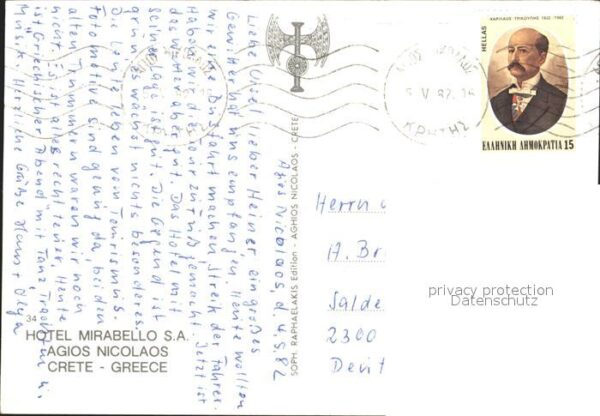 Agios Nicolaos d. 4.5.82
Liebe Ursel lieber Heiner, ein großes
Gewitter hat uns empfangen. Heute wollten
wir eine Busfahrt machen, Streik der Fahrer.
Haben wir die Tour zu Fuß gemacht. Jetzt ist
das Wetter aber gut. Das Hotel mit
seiner Lage ist gut. Die Gegend ist
grün es wächst nichts besonderes.
Die Leute leben vom Tourismus.
Fotomotive sind genug da, bei den
alten Trümmern waren wir noch
nicht. Es ist alles recht teuer. Heute
ist Griechischer Abend mit Tanz, Trachten u.
Musik. Herzliche Grüße Hans + Olga
SOPH. RAPHAELAKIS Edition - AGHIOS NICOLAOS - CRETE
34
HOTEL MIRABELLO S.A.
AGIOS NICOLAOS
CRETE - GREECE
5 V 82
ΚΡΗΤΗΣ
ΧΑΡΙΛΑΟΣ ΤΡΙΚΟΥΠΗΣ 1832-1982
HELLAS
ΕΛΛΗΝΙΚΗ ΔΗΜΟΚΡΑΤΙΑ 15
Herrn
A. Br
Salde
2300
privacy protection
Datenschutz